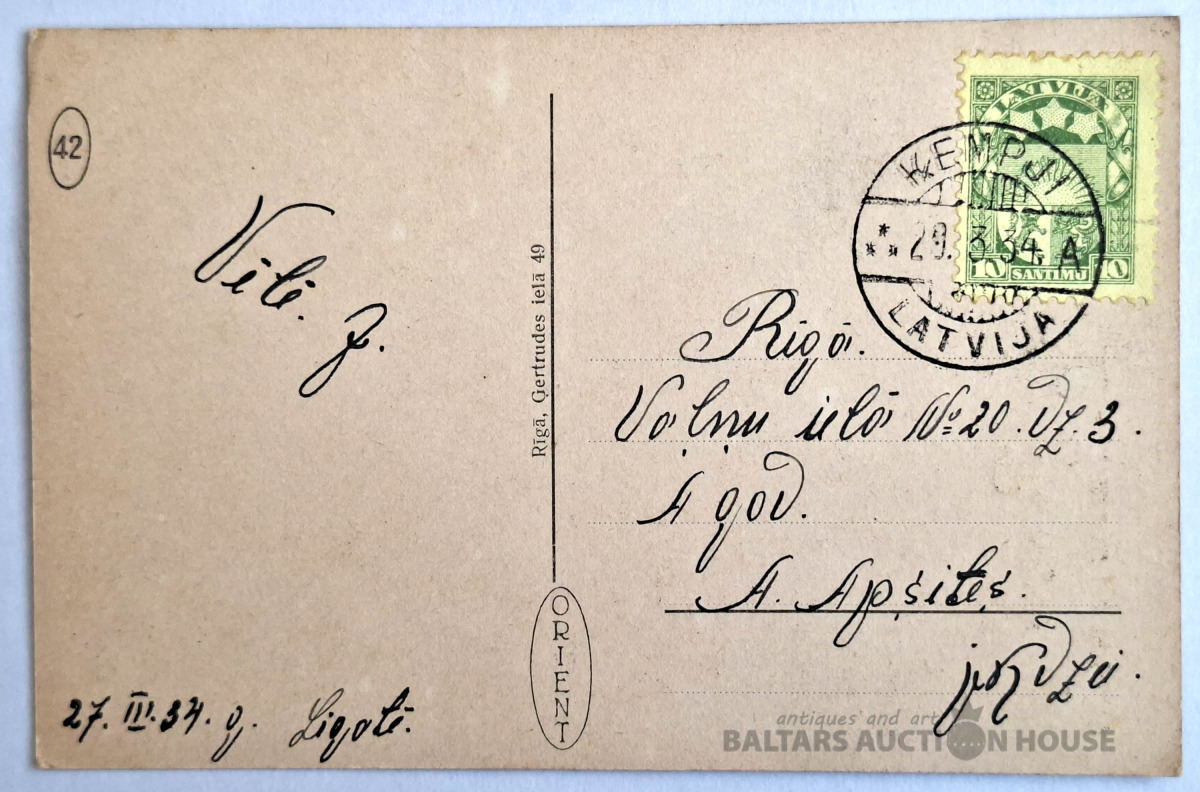 42
Vēlē. J.
27. III. 34. g. Līgotē.
Rīgā, Ģertrudes ielā 49
ORIENT
LATVIJA
10 SANTIMU 10
ĶEMPJI
29. 3. 34. A
LATVIJA
Rīgā.
Vaļņu ielā № 20. dz. 3.
A god.
A. Apsītes.
jkdzei.
antiques and art
BALTARS AUCTION HOUSE